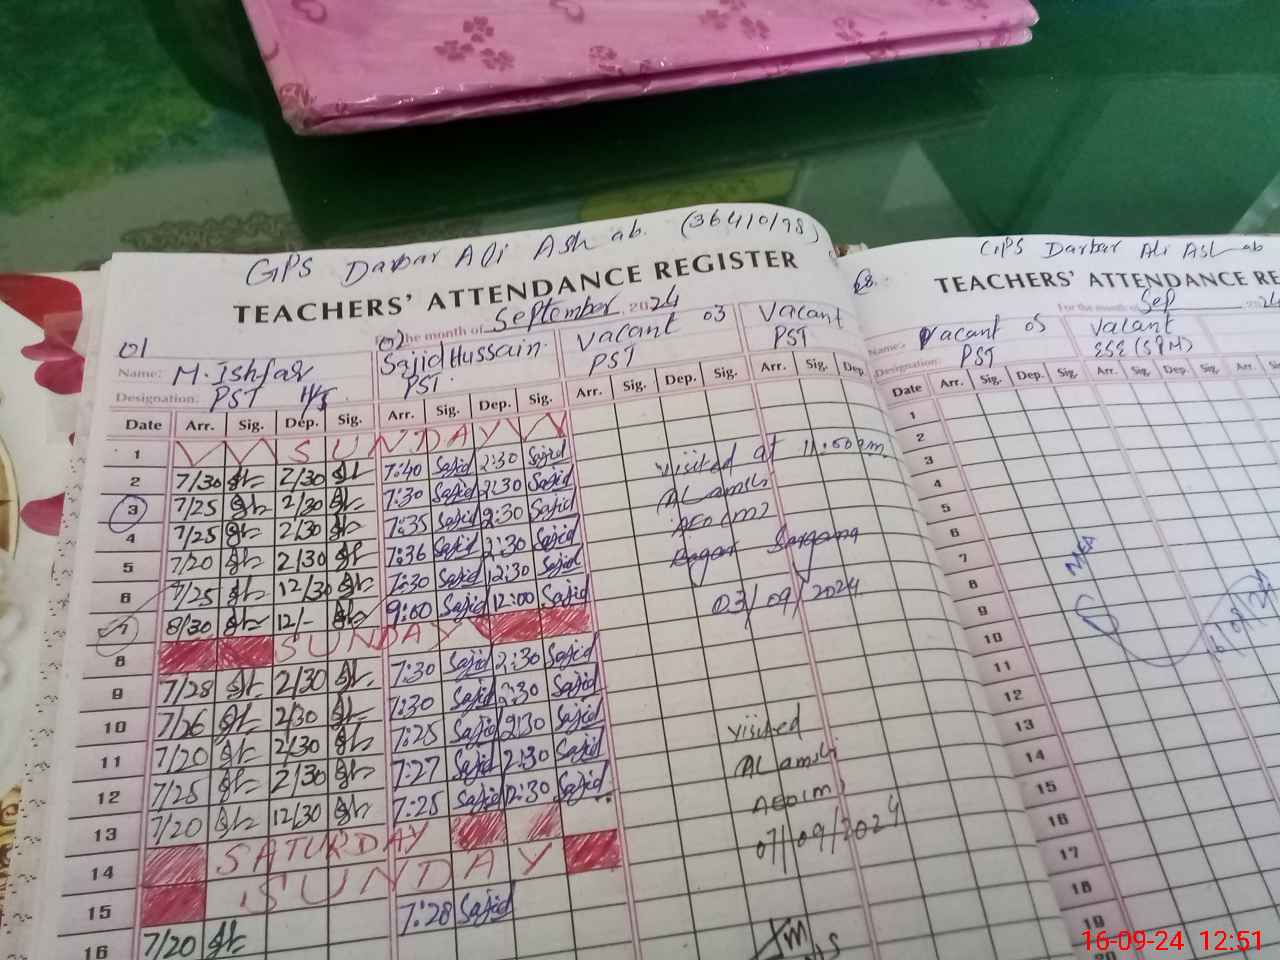 GPS Darbar Ali Ashab. (36410198)
TEACHERS' ATTENDANCE REGISTER
the month of September 2024
01 02) Vacant 03 Vacant
Name: M. Ishfaq Sajid Hussain. PST PST
Designation: PST PST.
Date Arr. Sig. Dep. Sig. Arr. Sig. Dep. Sig. Arr. Sig. Dep. Sig. Arr. Sig. Dep.
1 SUNDAY
2 7/30 2/30 7:40 Sajid 2:30 Sajid
3 7/25 2/30 7:30 Sajid 2:30 Sajid
4 7/25 2/30 7:35 Sajid 2:30 Sajid
5 7/20 2/30 7:36 Sajid 2:30 Sajid
6 7/25 12/30 7:30 Sajid 12:30 Sajid
7 8/30 12/- 9:00 Sajid 12:00 Sajid
8 SUNDAY
9 7/28 2/30 7:30 Sajid 2:30 Sajid
10 7/26 2/30 7:30 Sajid 2:30 Sajid
11 7/20 2/30 7:25 Sajid 2:30 Sajid
12 7/25 2/30 7:27 Sajid 2:30 Sajid
13 7/20 12/30 7:25 Sajid 12:30 Sajid
14 SATURDAY
15 SUNDAY
16 7/20 7:28 Sajid
visited at 11:00 am
AEO (M)
03/09/2024
visited
AEO (M)
07/09/2024
GPS Darbar Ali Ashab
TEACHERS' ATTENDANCE RE
For the month of Sep 202
Name: Vacant 05 Vacant
Designation: PST ESE (S&M)
Date Arr. Sig. Dep. Sig. Arr. Sig. Dep. Sig. Arr.
1
2
3
4
5
6
7
8
9
10
11
12
13
14
15
16
17
18
19
20
MEA
16-09-24 12:51